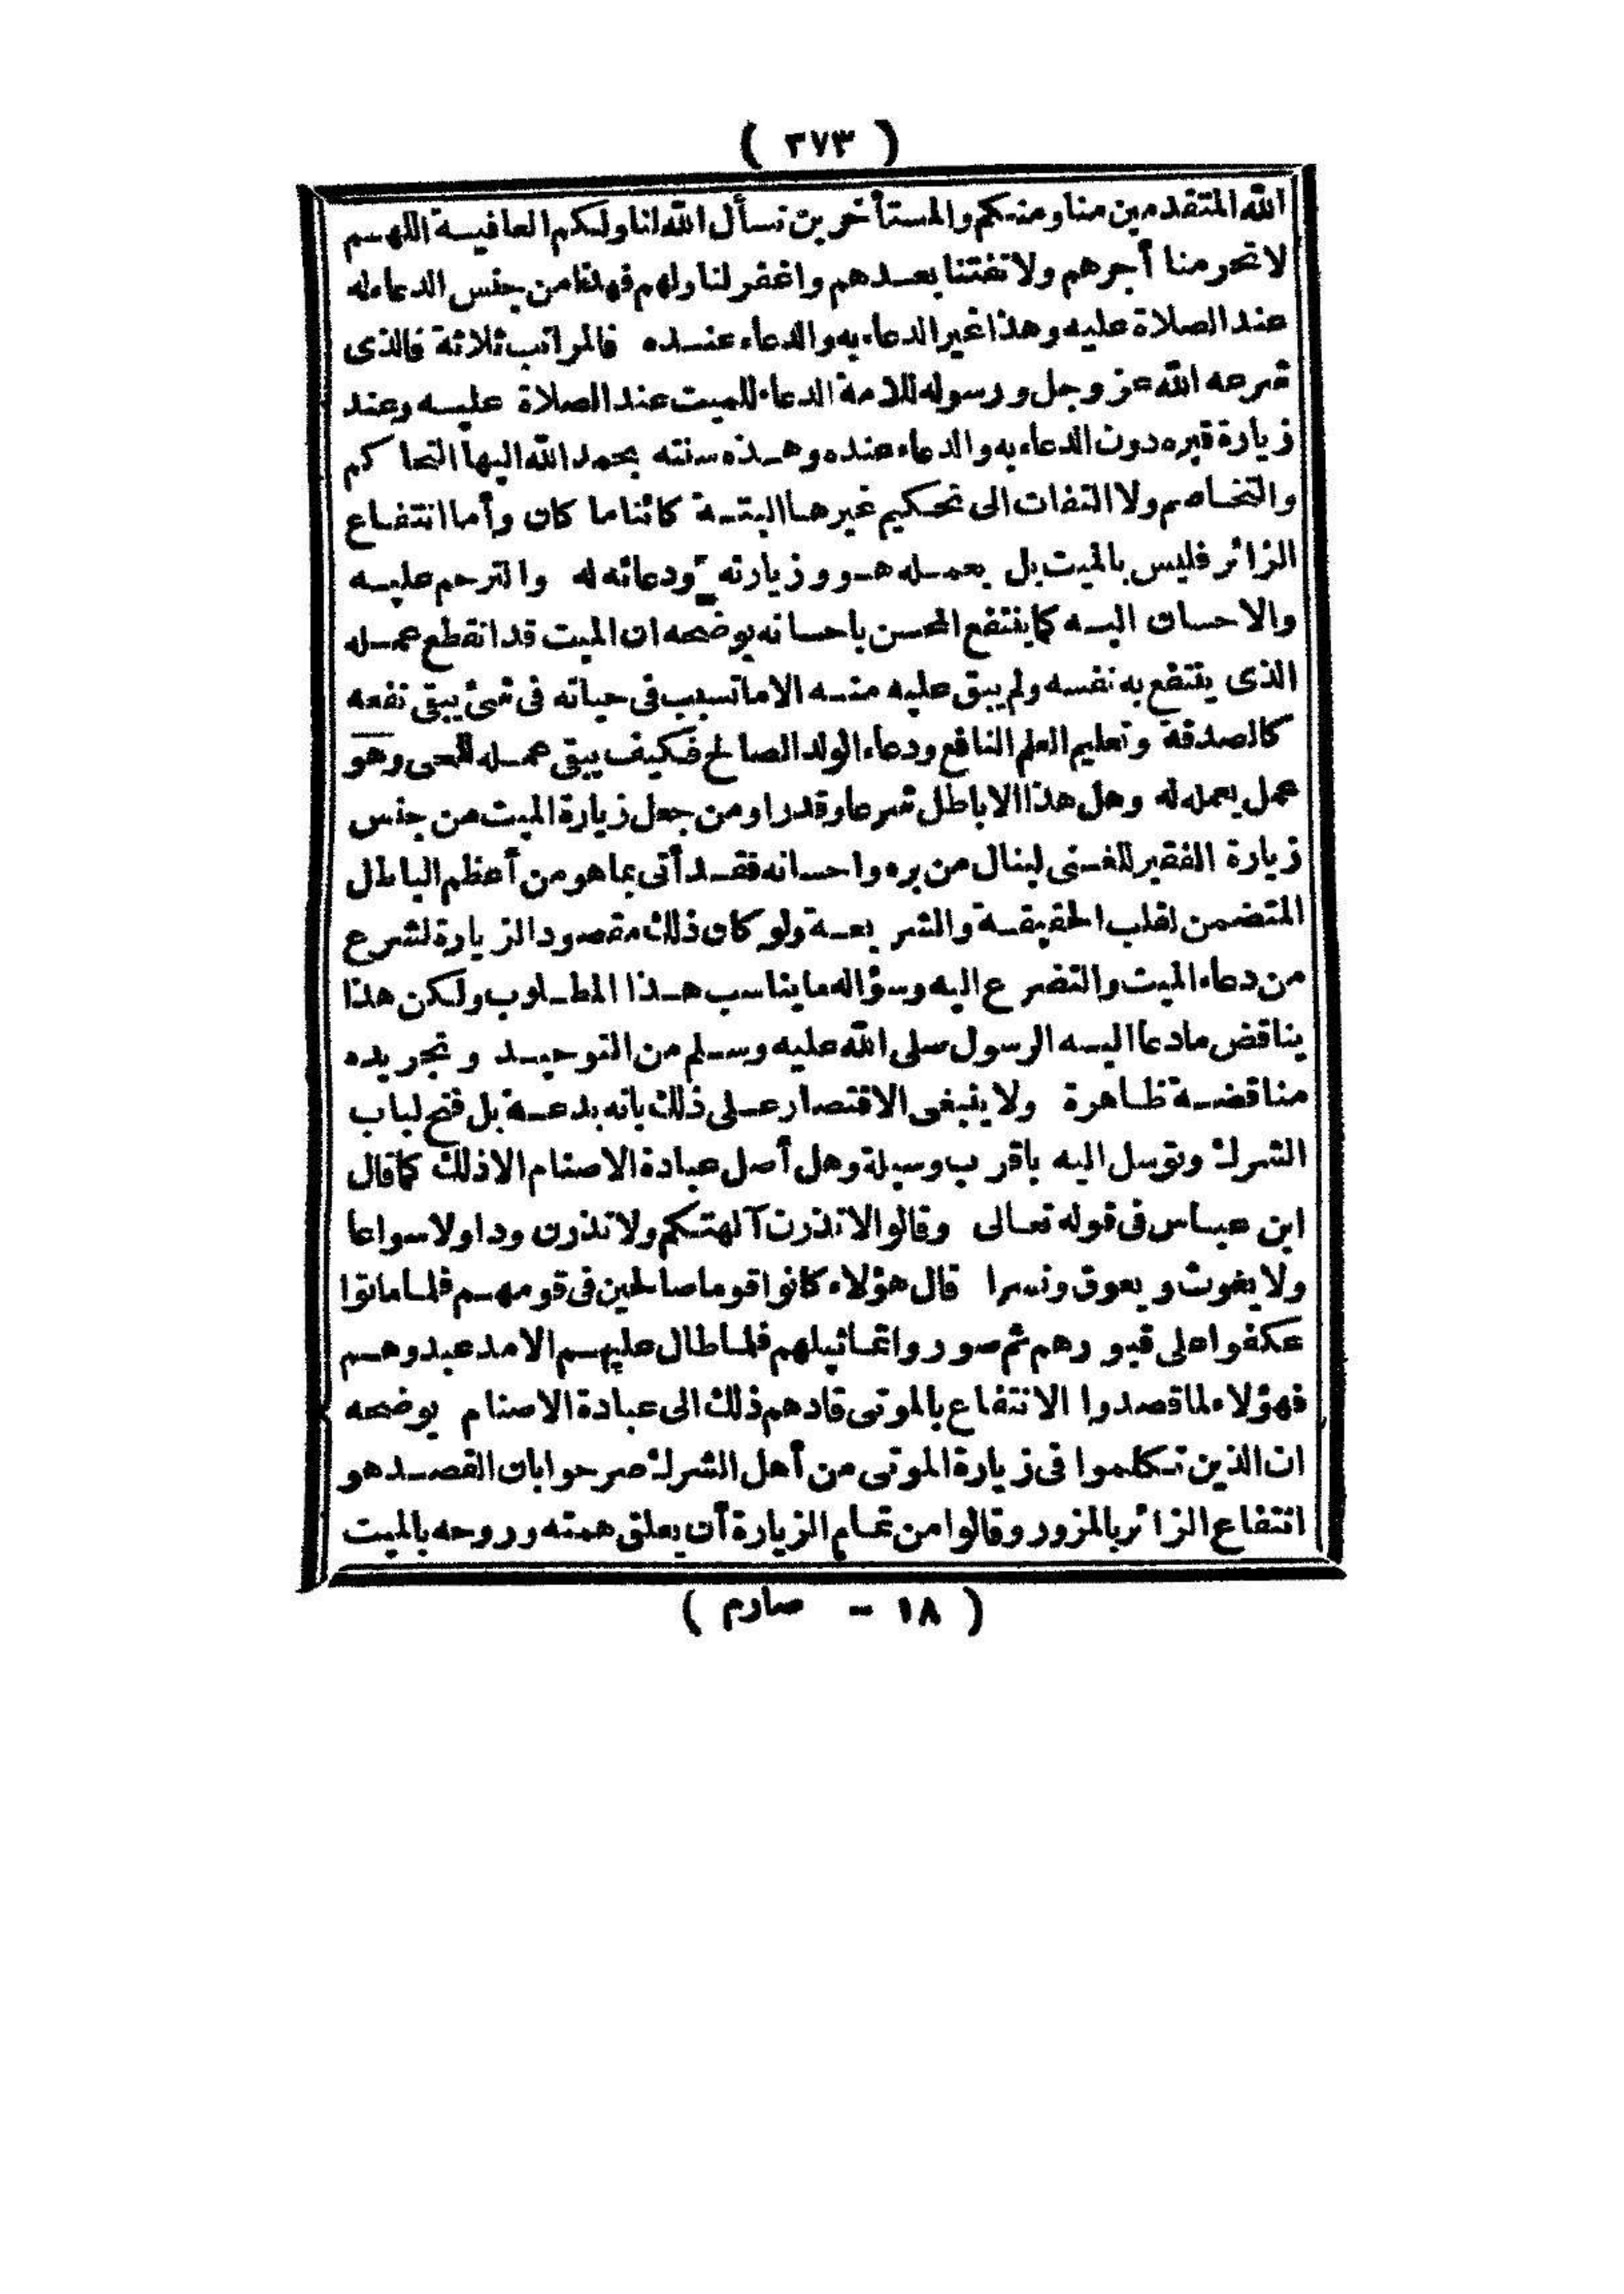 ( ٢٧٣ )
الله المتقدمين منا ومنكم والمستأخرين نسأل الله لنا ولكم العافية اللهم
لا تحرمنا أجرهم ولا تفتنا بعدهم واغفر لنا ولهم فهذا من جنس الدعاء له
عند الصلاة عليه وهذا غير الدعاء به والدعاء عنده فالمراتب ثلاثة فالذى
شرعه الله عز وجل ورسوله للامة الدعاء للميت عند الصلاة عليه وعند
زيارة قبره دون الدعاء به والدعاء عنده وهذه سنته بحمد الله اليها التحاكم
والتخاصم ولا التفات الى تحكيم غيرها البتة كائنا ما كان وأما انتفاع
الزائر فليس بالميت بل بعمله هو وزيارته ودعائه له والترحم عليه
والاحسان اليه كما ينتفع المحسن باحسانه يوضحه ان الميت قد انقطع عمله
الذى ينتفع به نفسه ولم يبق عليه منه الا ما تسبب فى حياته فى شئ يبقى نفعه
كالصدقة وتعليم العلم النافع ودعاء الولد الصالح فكيف يبقى عمله للحى وهو
عمل يعمله له وهل هذا الا باطل شرعا وقدرا ومن جعل زيارة الميت من جنس
زيارة الفقير للغنى لينال من بره واحسانه فقد أتى بما هو من أعظم الباطل
المتضمن لقلب الحقيقة والشريعة ولو كان ذلك مقصود الزيارة لشرع
من دعاء الميت والتضرع اليه وسؤاله ما يناسب هذا المطلوب ولكن هذا
يناقض ما دعا اليه الرسول صلى الله عليه وسلم من التوحيد وتجريده
مناقضة ظاهرة ولا ينبغى الاقتصار على ذلك بانه بدعة بل فتح لباب
الشرك وتوسل اليه باقرب وسيلة وهل أصل عبادة الاصنام الا ذلك كما قال
ابن عباس فى قوله تعالى وقالوا لا تذرن آلهتكم ولا تذرن ودا ولا سواعا
ولا يغوث ويعوق ونسرا قال هؤلاء كانوا قوما صالحين فى قومهم فلما ماتوا
عكفوا على قبورهم ثم صوروا تماثيلهم فلما طال عليهم الامد عبدوهم
فهؤلاء لما قصدوا الانتفاع بالموتى قادهم ذلك الى عبادة الاصنام يوضحه
ان الذين تكلموا فى زيارة الموتى من أهل الشرك صرحوا بان القصد هو
انتفاع الزائر بالمزور وقالوا من تمام الزيارة أن يعلق همته وروحه بالميت
( ١٨ - صارم )